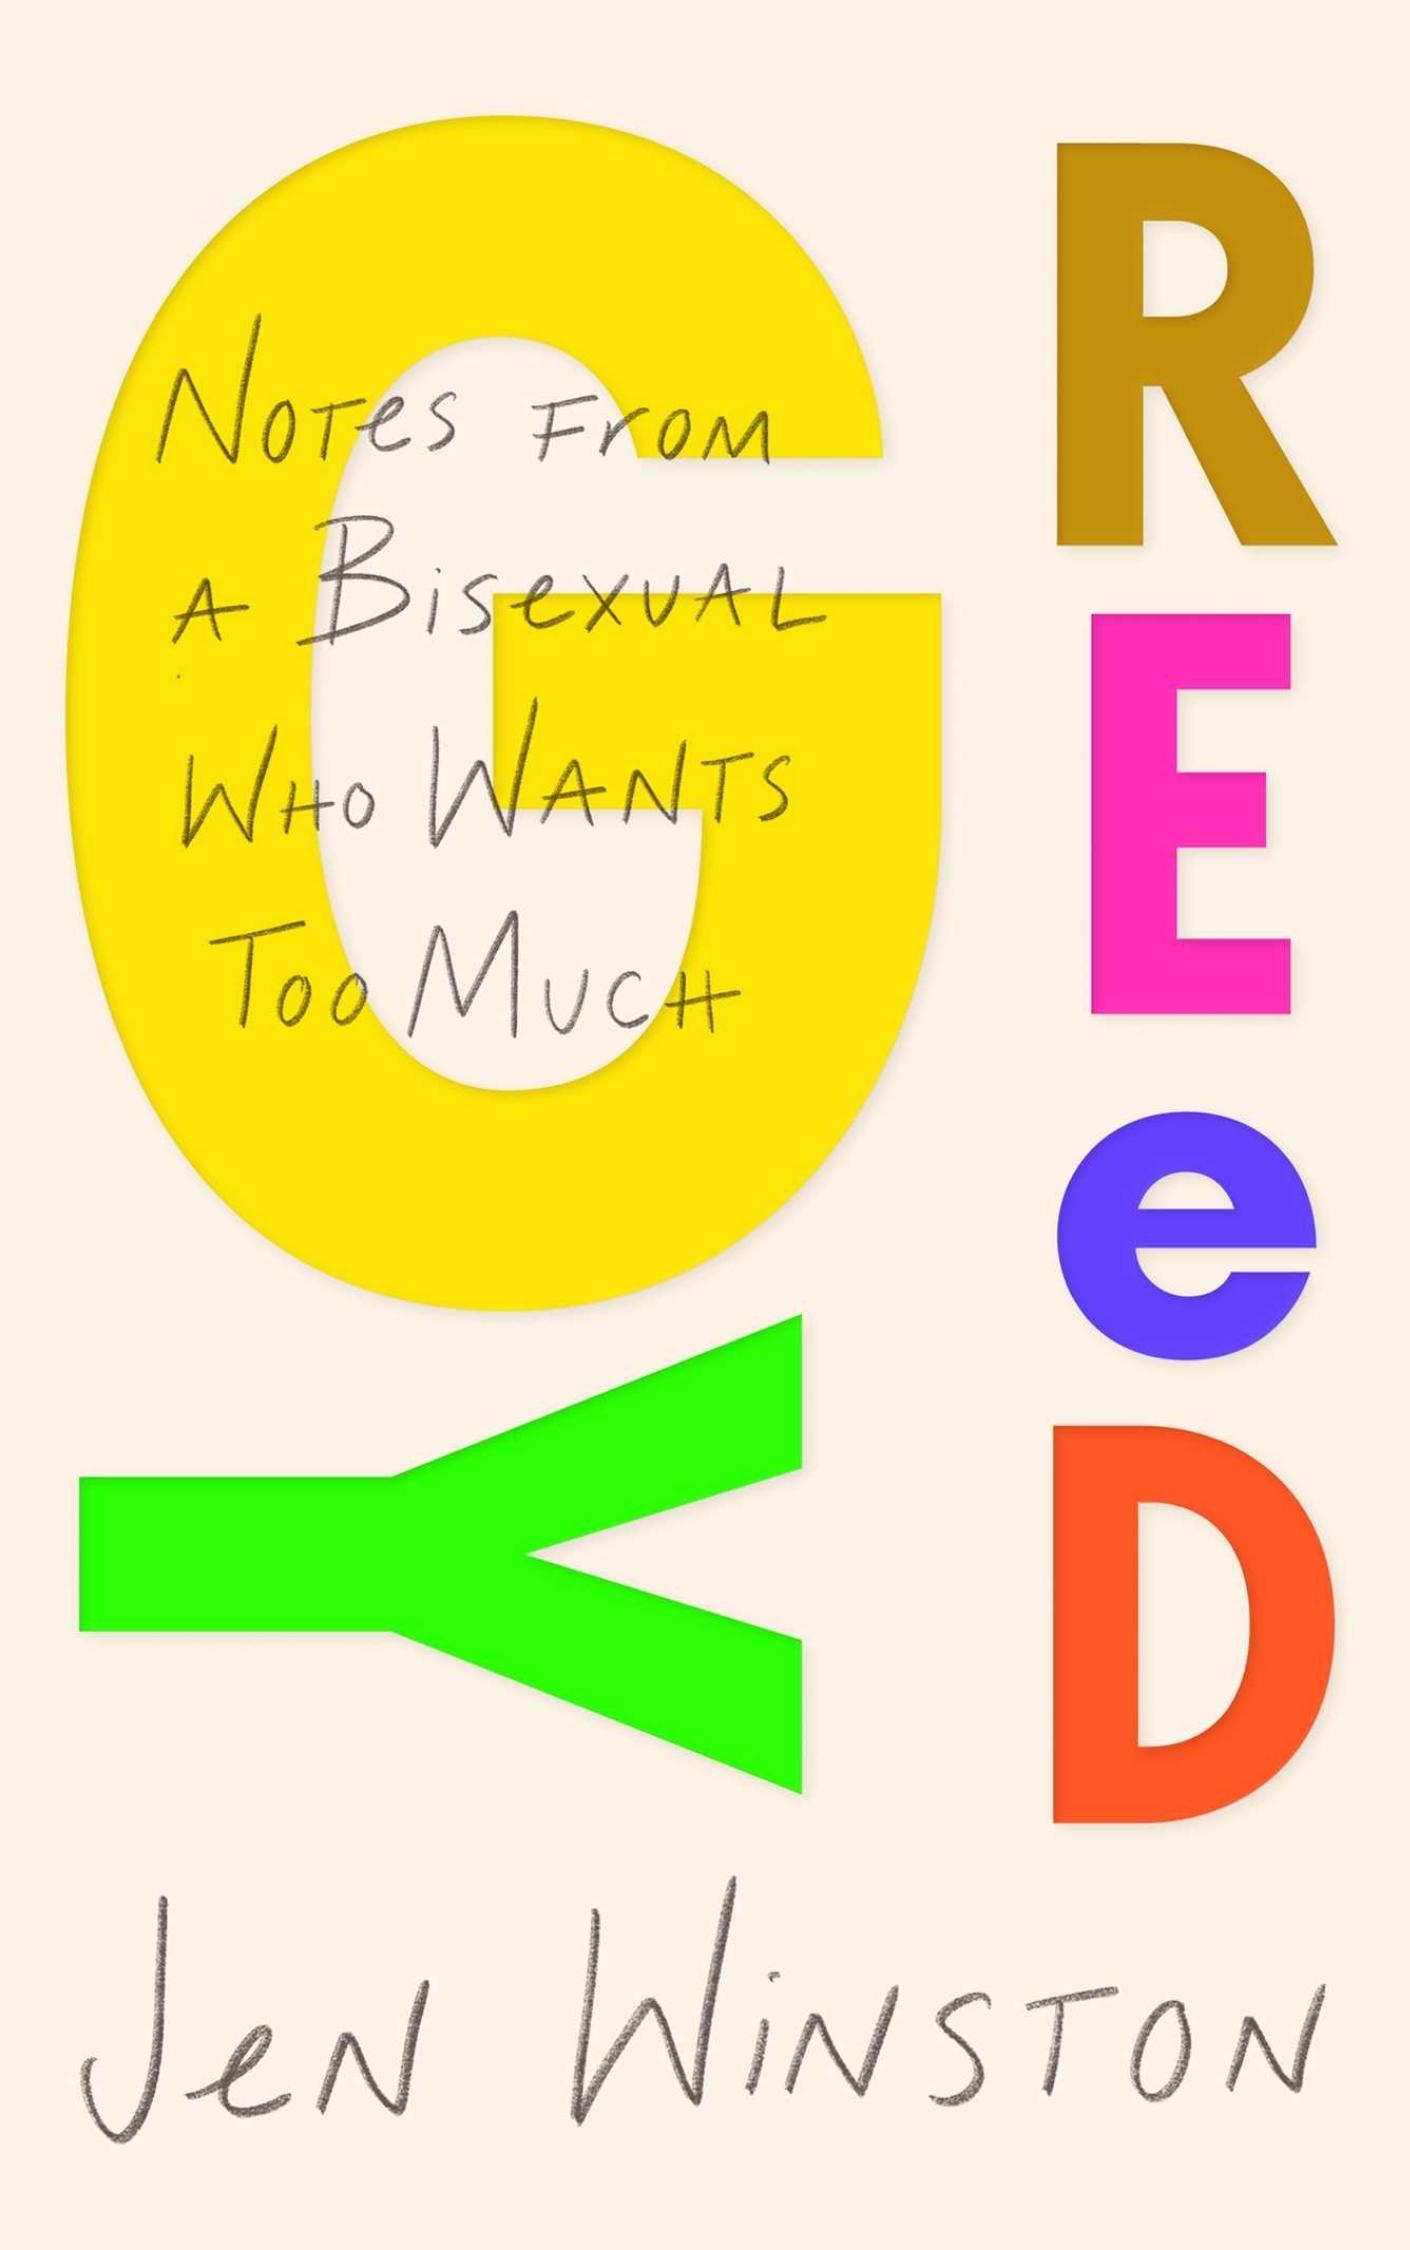 GREeDY
Notes From
A Bisexual
Who Wants
Too Much
Jen Winston